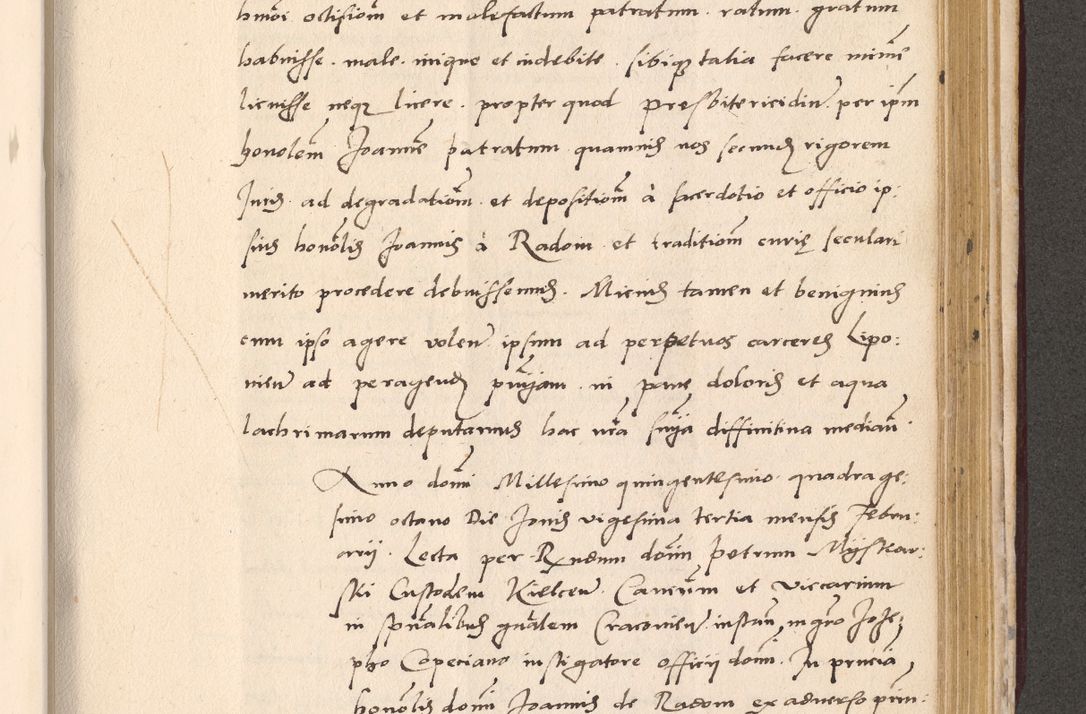 hmoi occisiom et malefactum patratum . ratum . gratum
habuisse . male . inique et indebite . sibiqz talia facere minime
licuisse neqz licere . propter quod presbitericidiu per ipm
honolem Joannem patratum quamuis nos secundu rigorem
Juris . ad degradatiom . et depositiom à sacerdotio et officio ip:
sius honolis Joannis à Radom . et traditiom curię seculari
merito procedere debuissemus . Micius tamen et benignius
cum ipso agere volen ipsum ad perpetuos carceres Lipo:
vien ad peragend pnijam . in pane doloris et aqua
lachrimarum deputamus hac nra snija diffinitiua median .
Anno domi Millesimo quingentesimo . quadrage:
simo octauo Die Jouis vigesima tertia mensis Febru:
arij . Lecta per Rndum domi petrum Myszkow:
ski Custodem Kielcen . Canicum et viccarium
in spualibus gnalem Cracouien . instan , mgro Jose,
pho Copeciano instigatore officij domi . In pncia ,
honolis domi Joannis de Radom ex aduerso prin: